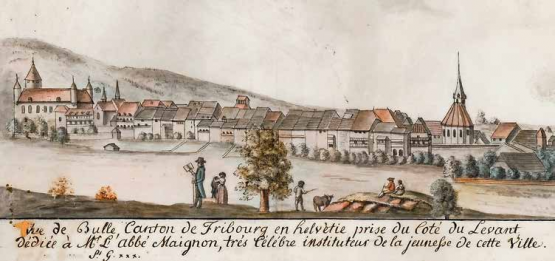 vue de Bulle, Canton de Fribourg en helvètie prise du Coté du Levant
dédiée à Mr. L'abbé Maignon, trés Célébre instituteur de la jeunesse de cette Ville.